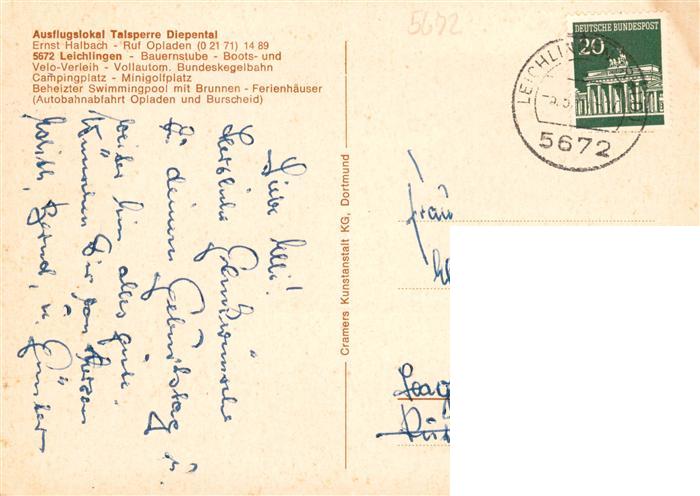 Ausflugslokal Talsperre Diepental
Ernst Halbach - Ruf Opladen (0 21 71) 14 89
5672 Leichlingen - Bauernstube - Boots- und
Velo-Verleih - Vollautom. Bundeskegelbahn
Campingplatz - Minigolfplatz
Beheizter Swimmingpool mit Brunnen - Ferienhäuser
(Autobahnabfahrt Opladen und Burscheid)
5672
DEUTSCHE BUNDESPOST
20
LEICHLIN
5672
Liebe
Herzliche Glückwünsche
zu deinem Geburtstag u.
weiter hin alles gute.
wünschen Dir von Herzen
Bernd, u. Günter
Cramers Kunstanstalt KG, Dortmund
Frau